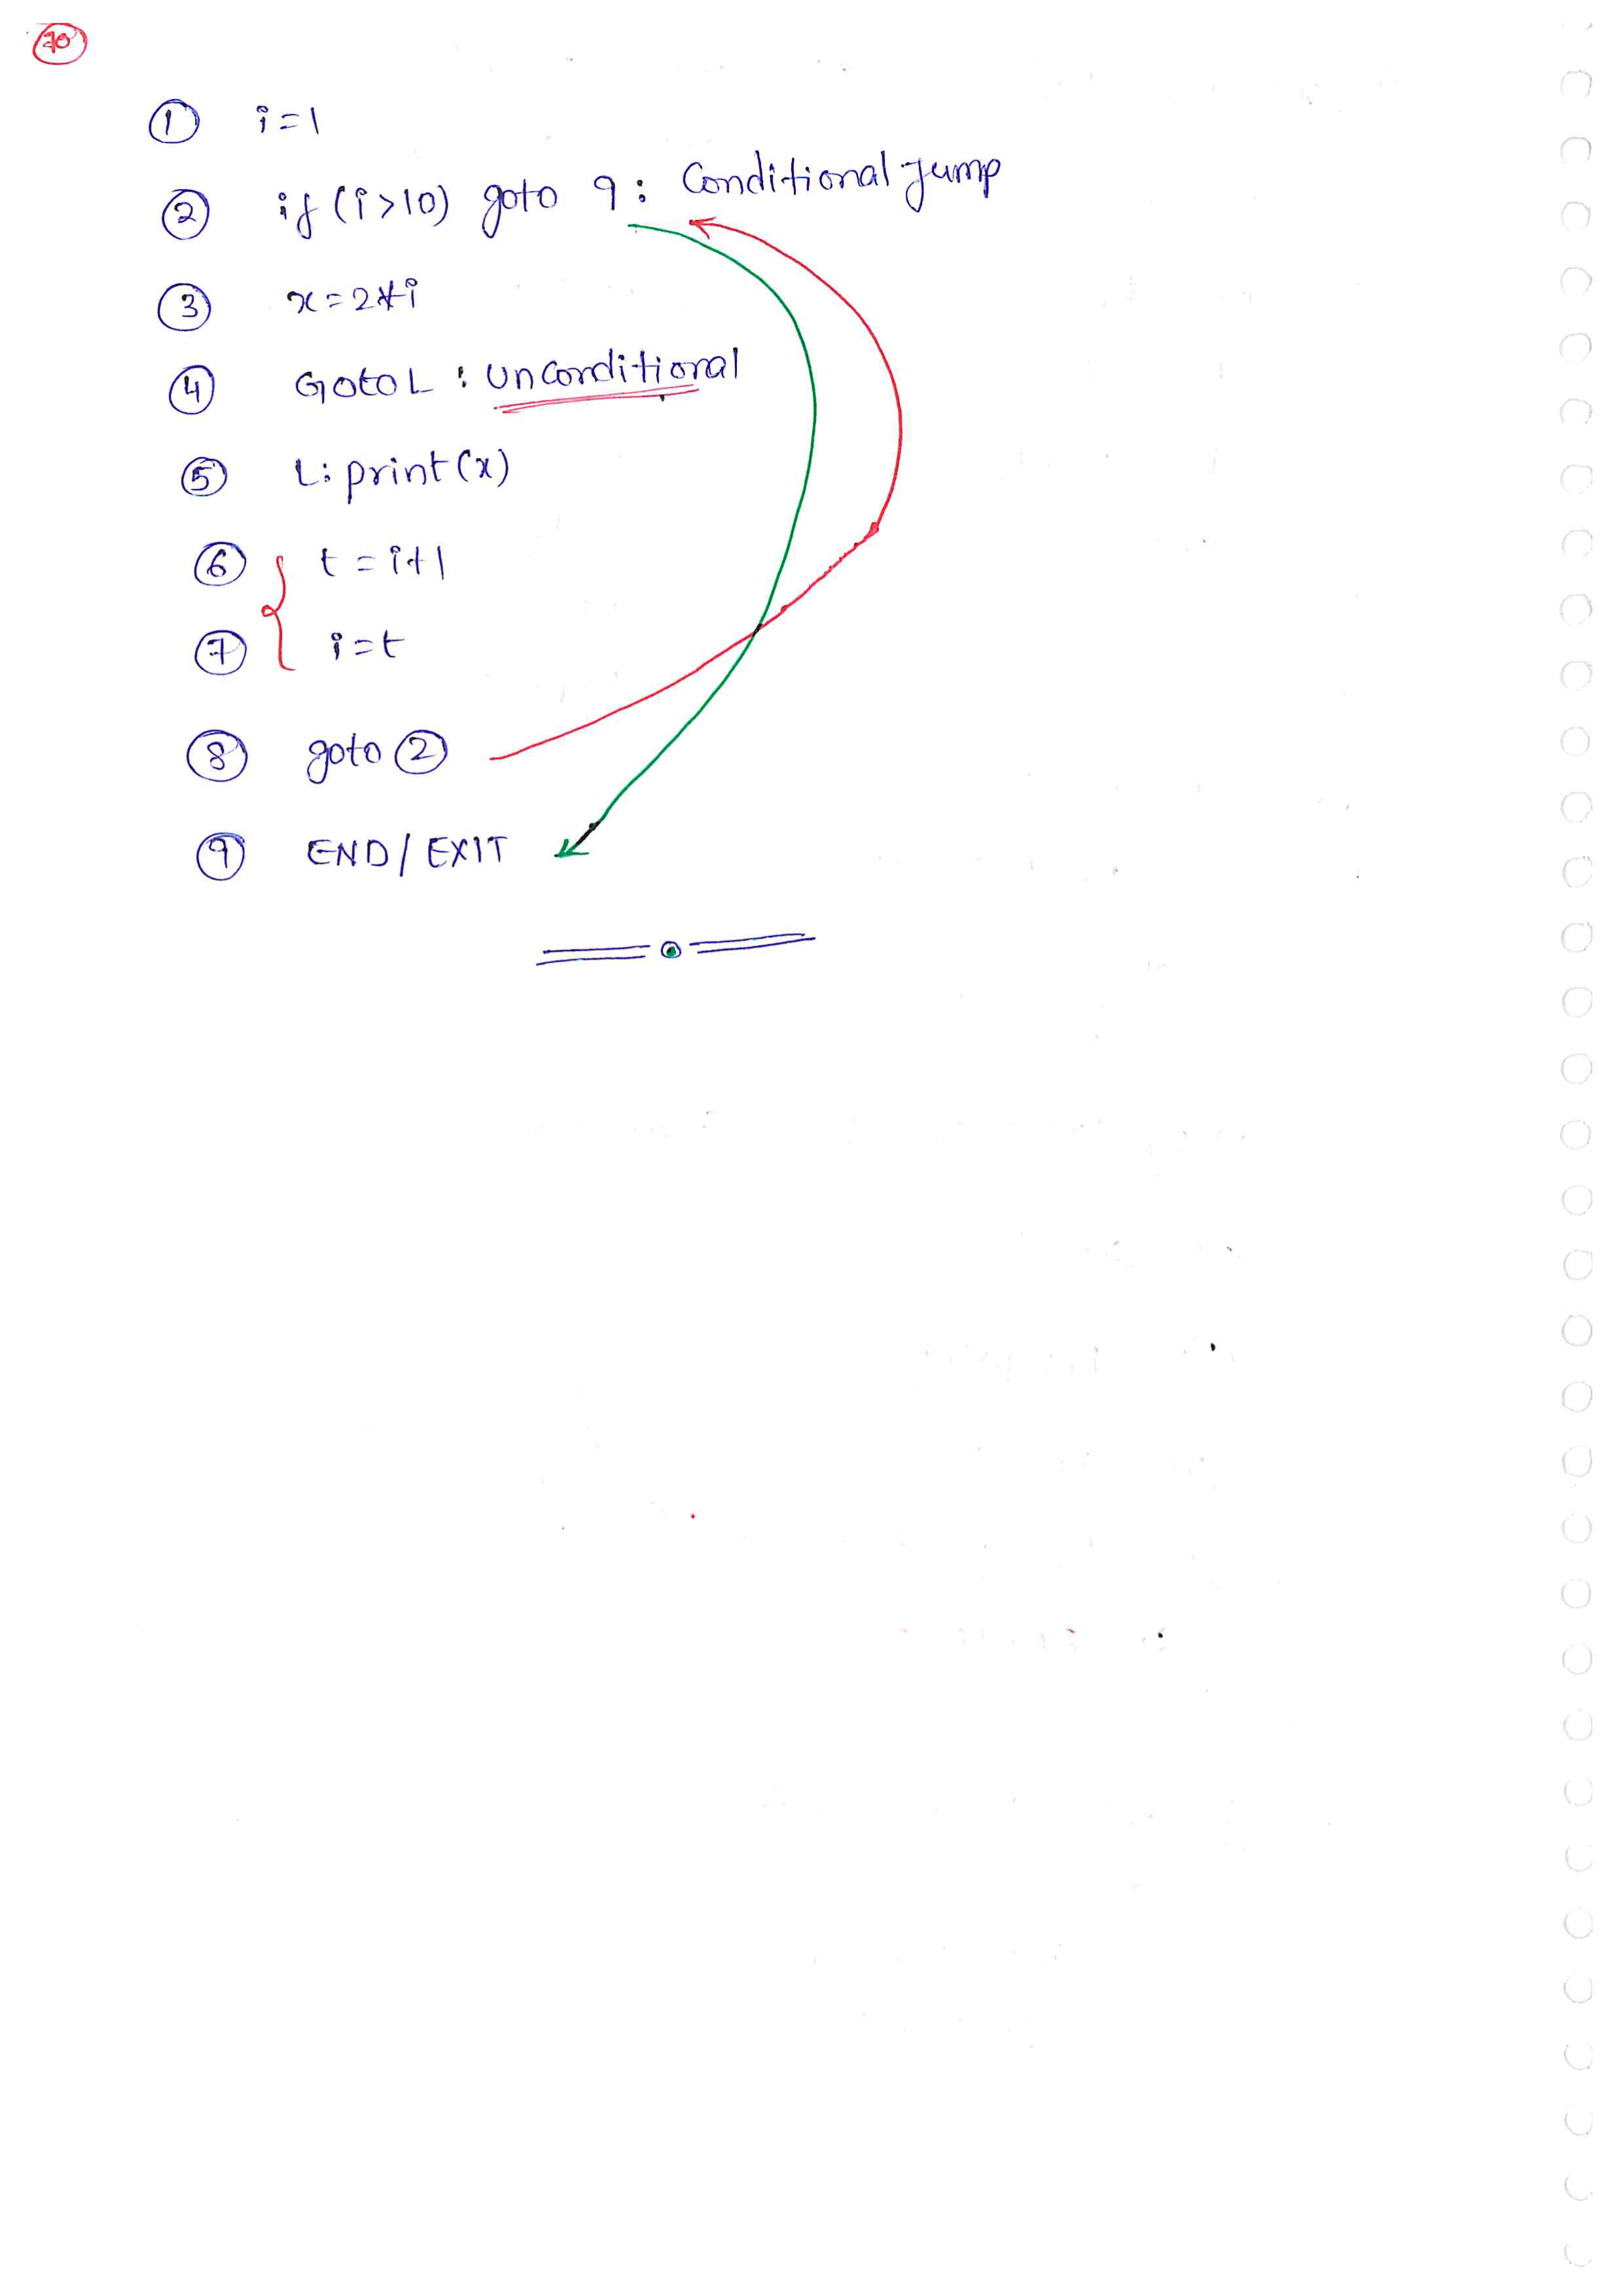 70
① i=1
② if (i>10) goto 9 : Conditional Jump
③ x=2*i
④ Goto L : Unconditional
⑤ L: print(x)
⑥ t = i+1
⑦ i=t
⑧ goto ②
⑨ END / EXIT